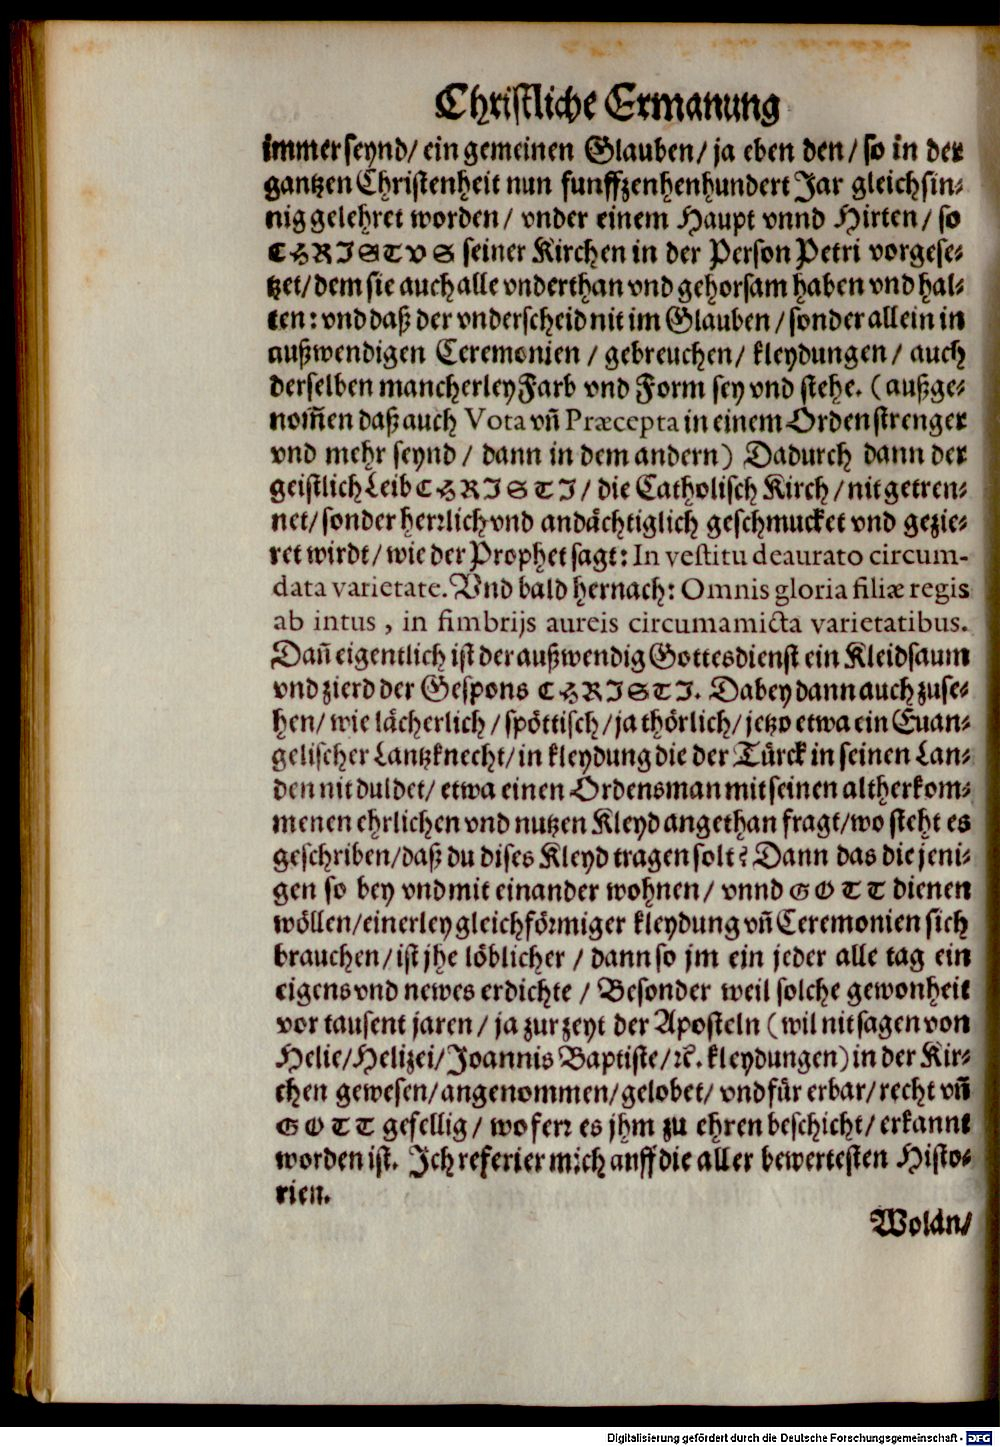 Christliche Ermanung
immer seynd/ ein gemeinen Glauben/ ja eben den/ so in der
gantzen Christenheit nun funffzenhenhundert Jar gleichsin⸗
nig gelehret worden/ vnder einem Haupt vnnd Hirten/ so
CHRISTVS seiner Kirchen in der Person Petri vorgese⸗
tzet/ dem sie auch alle vnderthan vnd gehorsam haben vnd hal⸗
ten: vnd daß der vnderscheid nit im Glauben/ sonder allein in
außwendigen Ceremonien/ gebreuchen/ kleydungen/ auch
derselben mancherley Farb vnd Form sey vnd stehe. (außge⸗
nom̃en daß auch Vota vñ Præcepta in einem Orden strenger
vnd mehr seynd/ dann in dem andern) Dadurch dann der
geistlich Leib CHRISTI/ die Catholisch Kirch/ nit getren⸗
net/ sonder herrlich vnd andächtiglich geschmucket vnd gezie⸗
ret wirdt/ wie der Prophet sagt: In vestitu deaurato circum-
data varietate. Vnd bald hernach: Omnis gloria filiæ regis
ab intus, in fimbrijs aureis circumamicta varietatibus.
Dañ eigentlich ist der außwendig Gottesdienst ein Kleidsaum
vnd zierd der Gespons CHRISTI. Dabey dann auch zuse⸗
hen/ wie lächerlich/ spöttisch/ ja thörlich/ jetzo etwa ein Euan⸗
gelischer Lantzknecht/ in kleydung die der Türck in seinen Lan⸗
den nit duldet/ etwa einen Ordensman mit seinen altherkom⸗
menen ehrlichen vnd nutzen Kleyd angethan fragt/ wo steht es
geschriben/ daß du dises Kleyd tragen solt? Dann das die jeni⸗
gen so bey vnd mit einander wohnen/ vnnd GOTT dienen
wöllen/ einerley gleichförmiger kleydung vñ Ceremonien sich
brauchen/ ist jhe löblicher/ dann so jm ein jeder alle tag ein
eigens vnd newes erdichte/ Besonder weil solche gewonheit
vor tausent jaren/ ja zur zeyt der Aposteln (wil nit sagen von
Helie/ Helizei/ Joannis Baptiste/ ꝛc. kleydungen) in der Kir⸗
chen gewesen/ angenommen/ gelobet/ vnd für erbar/ recht vñ
GOTT gefellig/ wo ferr es jhm zu ehren beschicht/ erkannt
worden ist. Ich referier mich auff die aller bewertesten Histo⸗
rien.
Wolan/
Digitalisierung gefördert durch die Deutsche Forschungsgemeinschaft - DFG